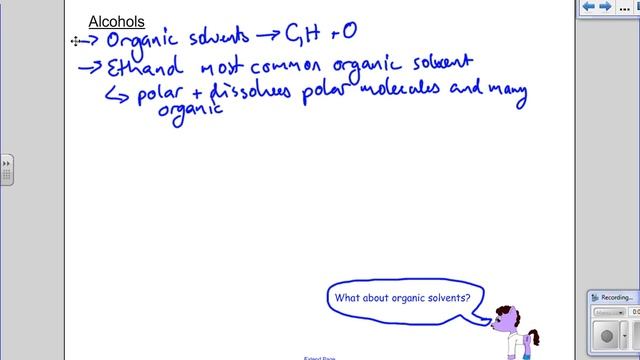 Alcohols
→ Organic solvents → C, H + O
→ Ethanol most common organic solvent
↳ polar + dissolves polar molecules and many
organic
What about organic solvents?
Recording...
Extend Page